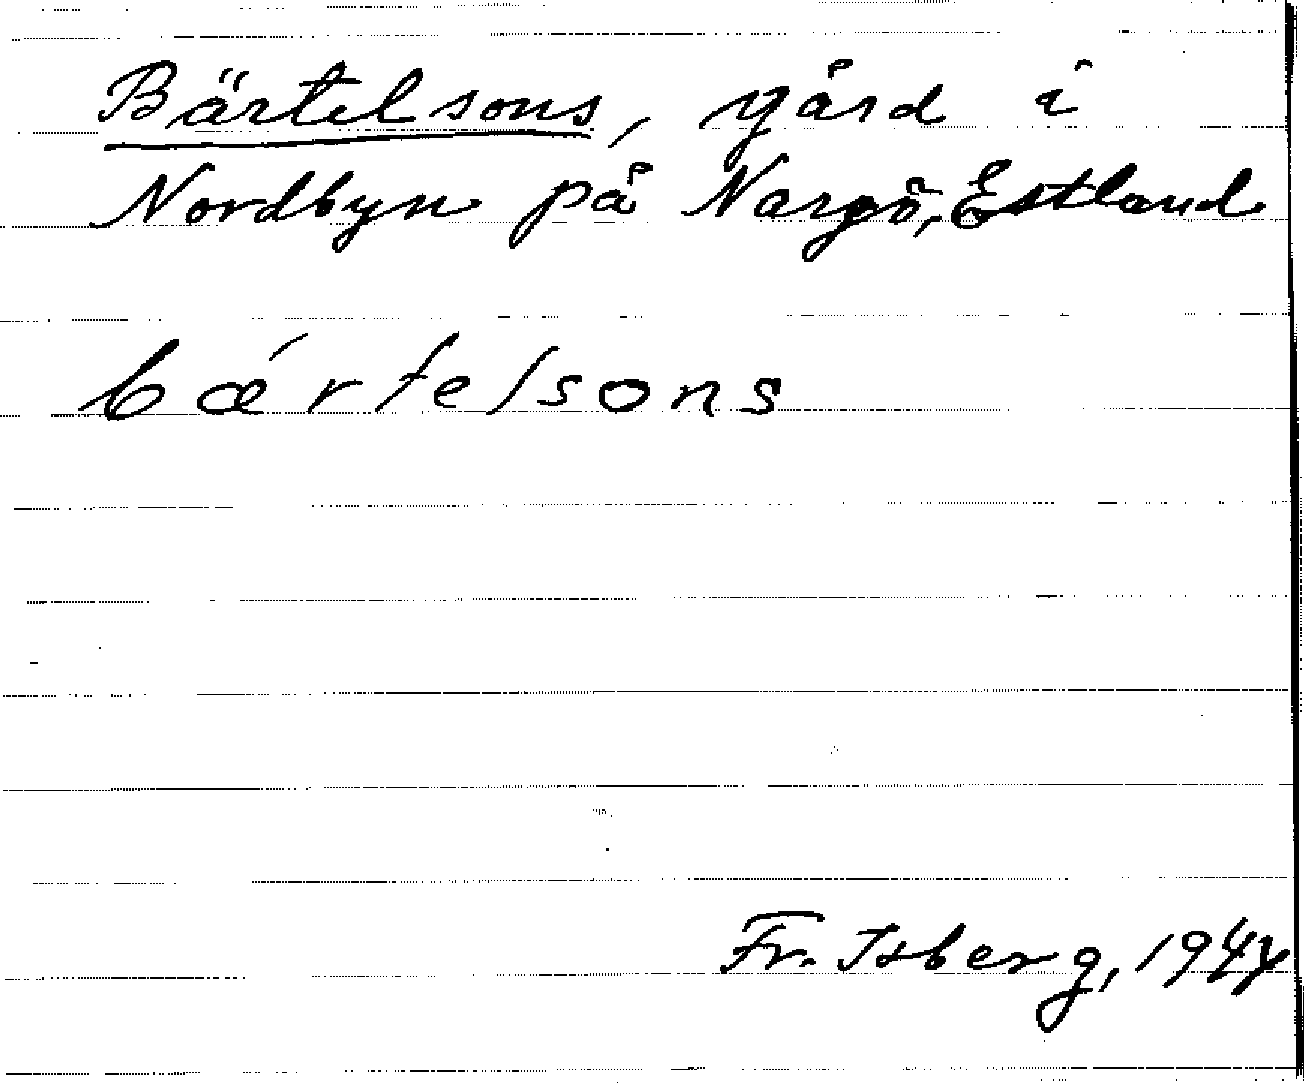 Bärtelsons, gård i
Nordbyn på Nargö, Estland
bǽrtelsons
Fr. Isberg, 1944